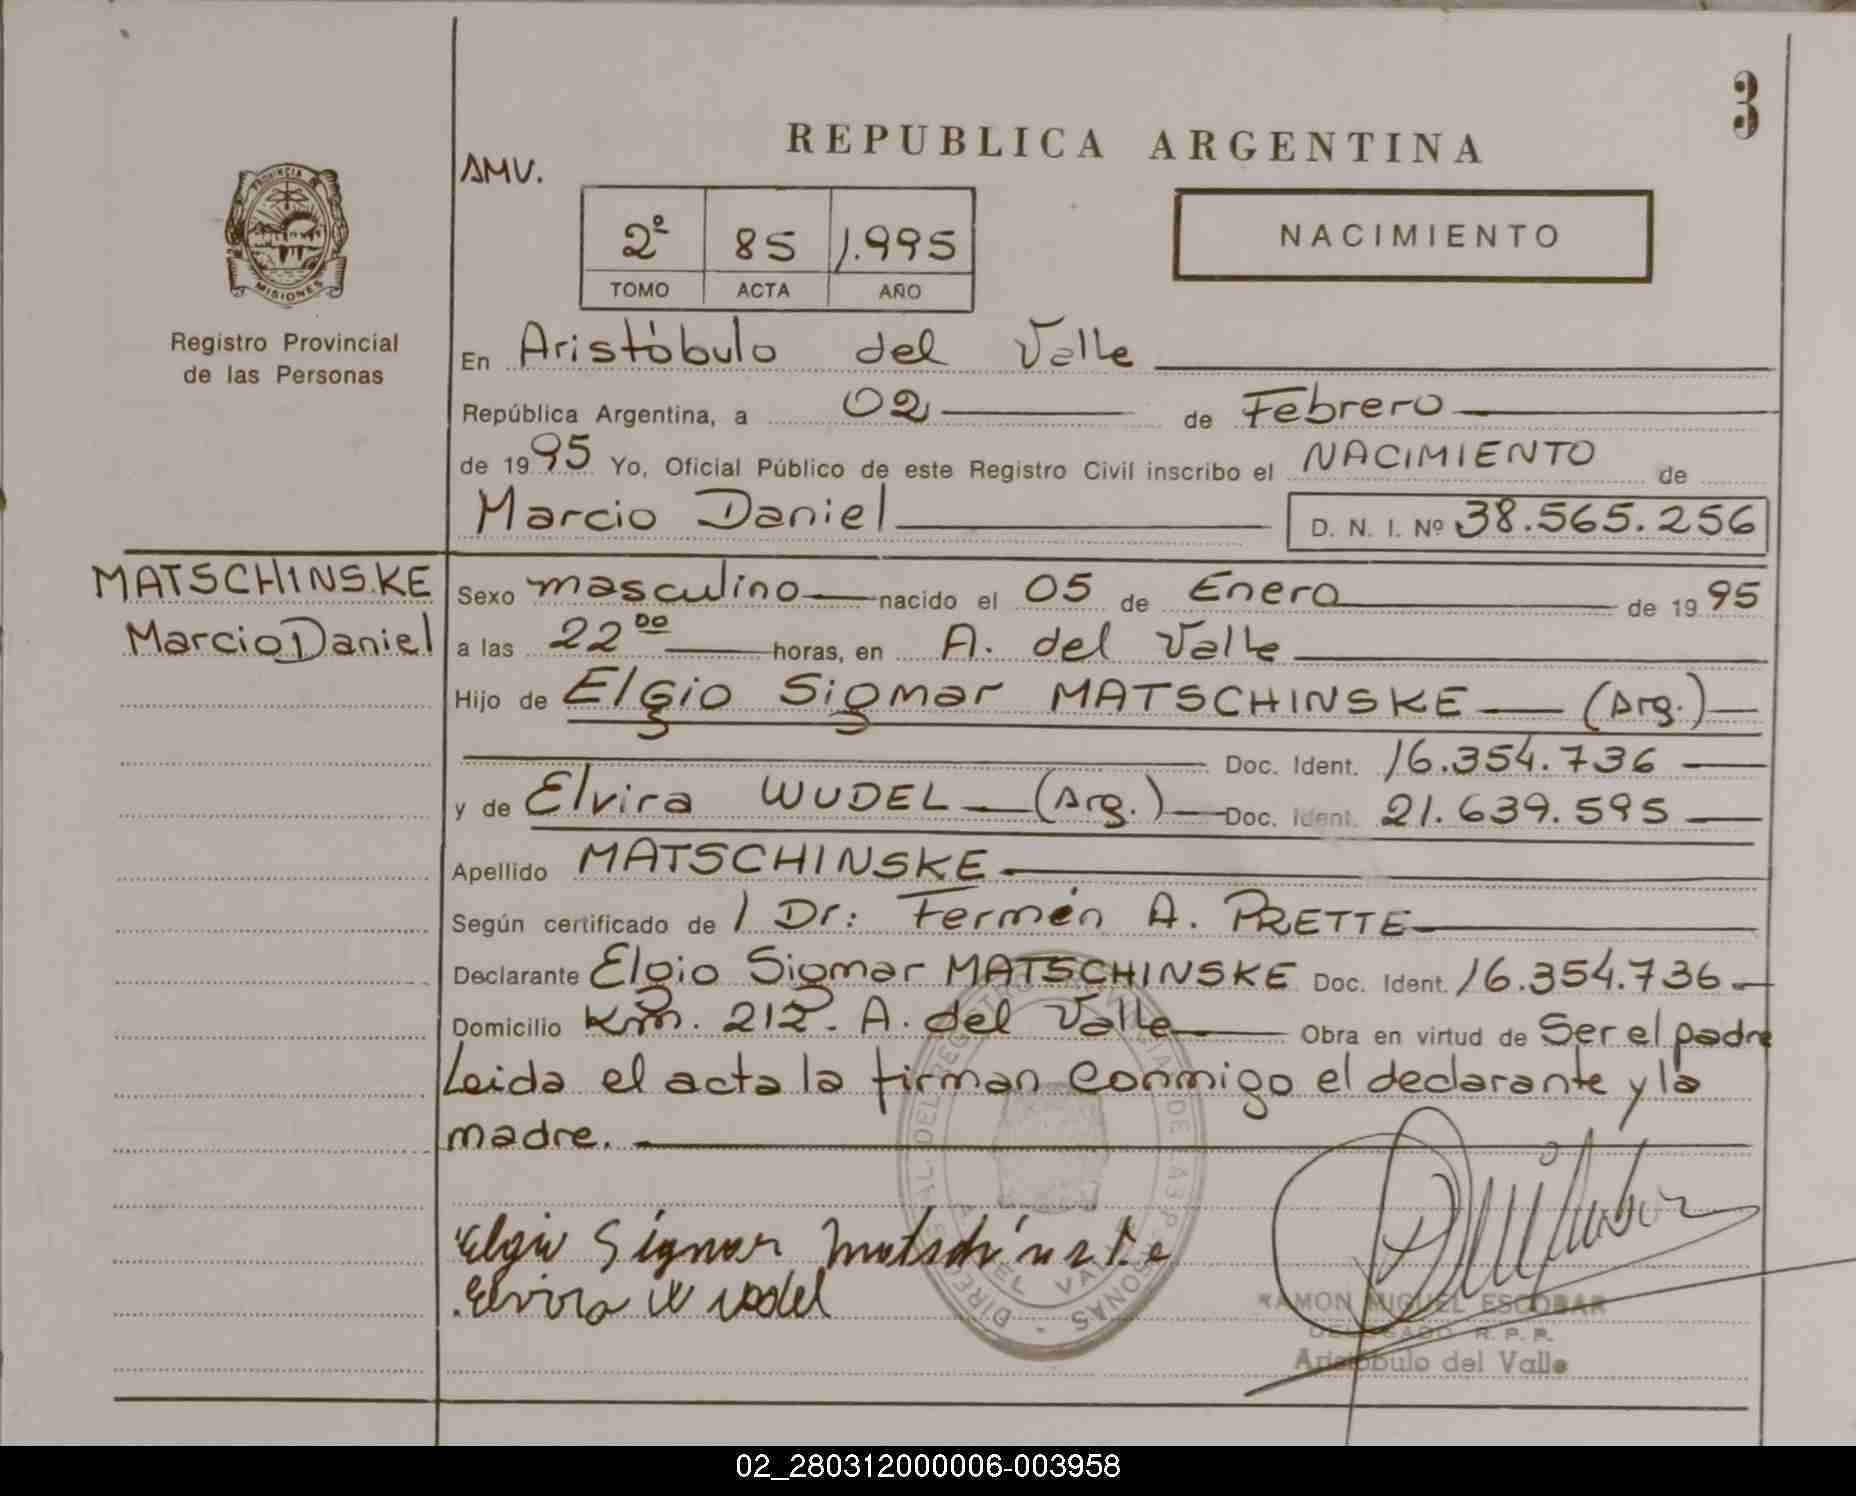 3
REPUBLICA ARGENTINA
AMV.
PROVINCIA DE
MISIONES
2º 85 1.995
TOMO ACTA AÑO
NACIMIENTO
Registro Provincial
de las Personas
En Aristóbulo del Valle
República Argentina, a 02 de Febrero
de 1995 Yo, Oficial Público de este Registro Civil inscribo el NACIMIENTO de
Marcio Daniel D. N. I. Nº 38.565.256
MATSCHINSKE
Marcio Daniel
Sexo masculino nacido el 05 de Enero de 1995
a las 22 00 horas, en A. del Valle
Hijo de Elgio Sigmar MATSCHINSKE (Arg.)
Doc. Ident. 16.354.736
y de Elvira WUDEL (Arg.) Doc. Ident. 21.639.595
Apellido MATSCHINSKE
Según certificado de 1 Dr: Fermén A. PRETTE
Declarante Elgio Sigmar MATSCHINSKE Doc. Ident. 16.354.736
Domicilio Km. 212. A. del Valle Obra en virtud de Ser el padre
Leida el acta la firman conmigo el declarante y la
madre.
Elgio Sigmar Matschinske
Elvira Wudel
RAMON MIGUEL ESCOBAR
DELEGADO R. P. P.
Aristóbulo del Valle
02_280312000006-003958